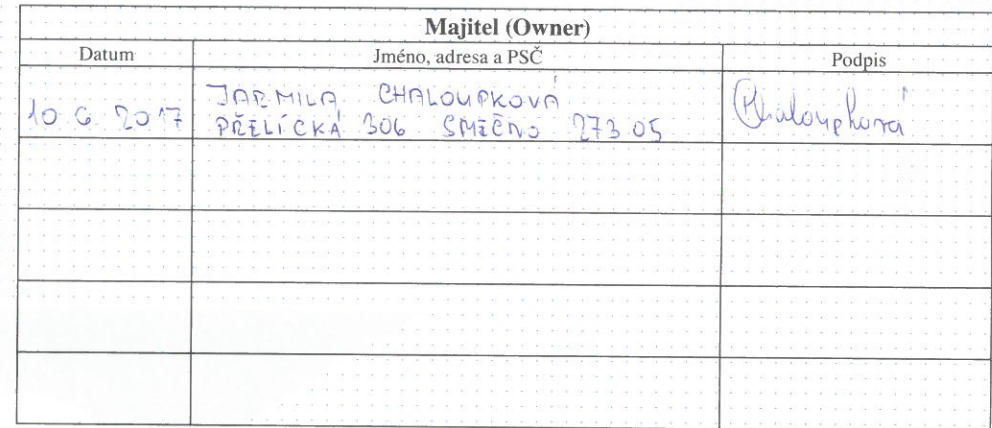 Majitel (Owner)
Datum Jméno, adresa a PSČ Podpis
JARMILA CHALOUPKOVÁ
10 6. 2017 PŘELÍCKÁ 306 SMEČNO 273 05 Chaloupková